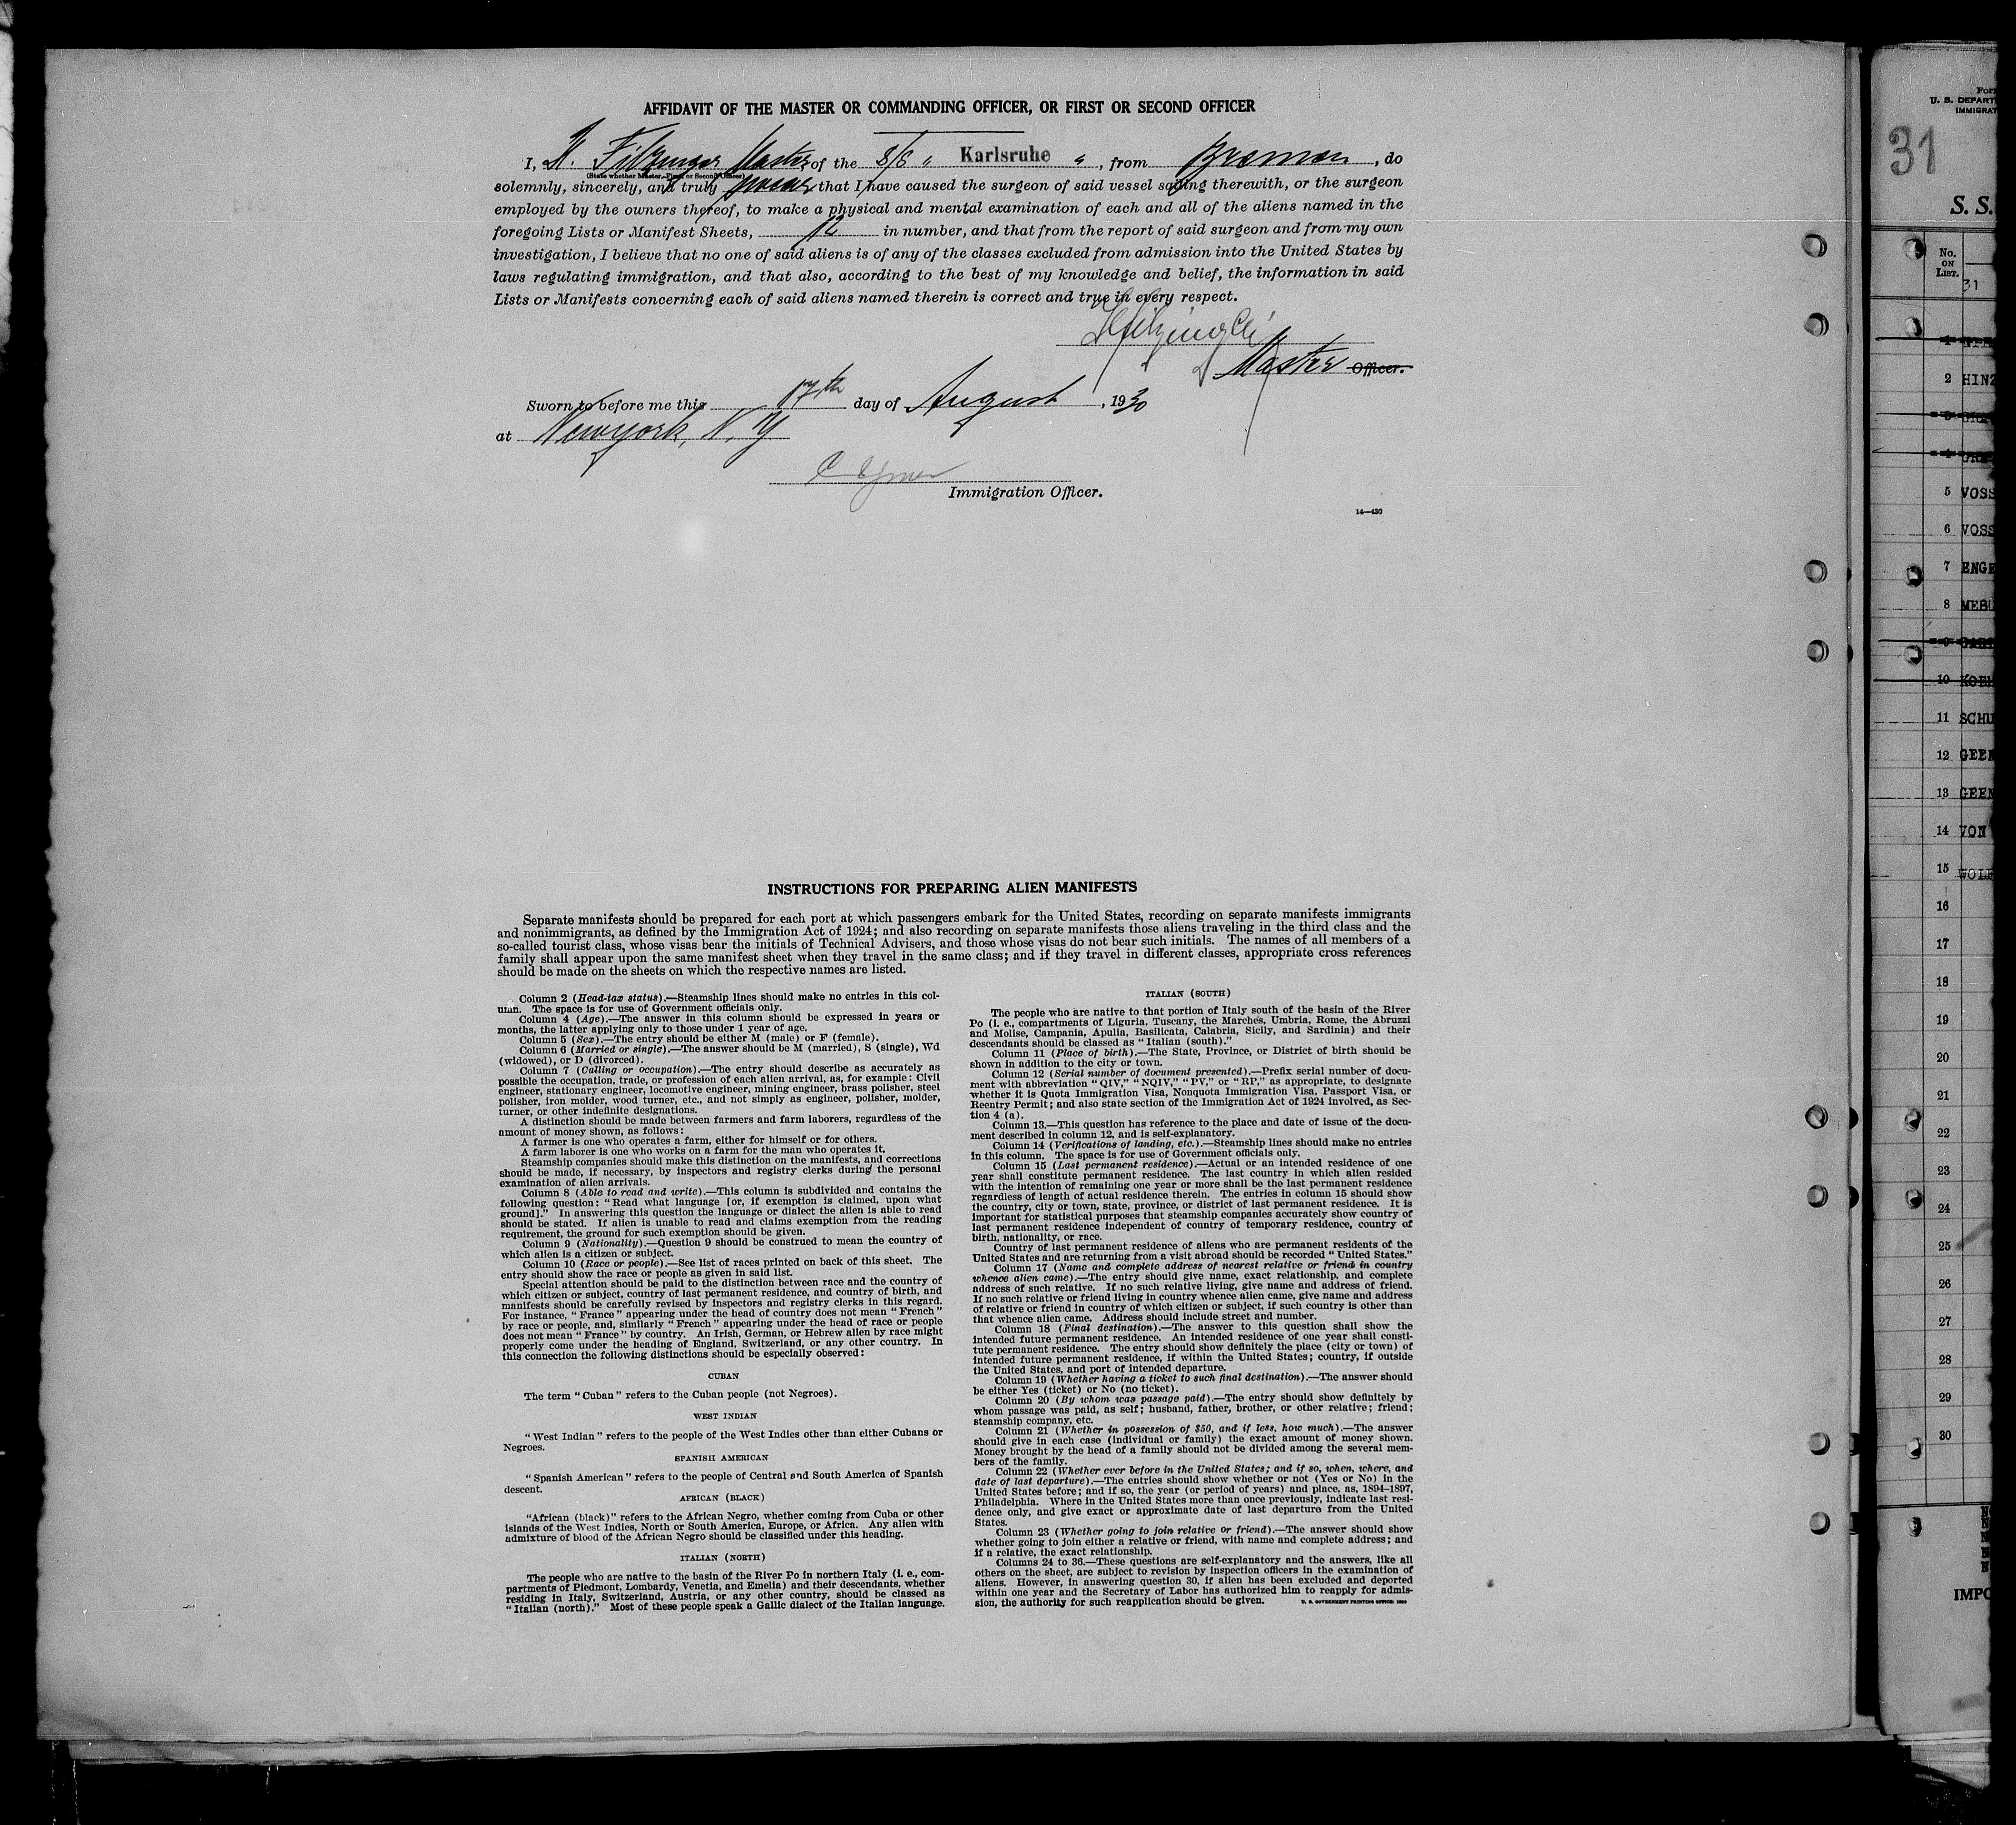 AFFIDAVIT OF THE MASTER OR COMMANDING OFFICER, OR FIRST OR SECOND OFFICER
I, H. Fitzinger Master, of the S/S " Karlsruhe ", from Bremen, do
(State whether Master, First or Second Officer)
solemnly, sincerely, and truly swear that I have caused the surgeon of said vessel sailing therewith, or the surgeon
employed by the owners thereof, to make a physical and mental examination of each and all of the aliens named in the
foregoing Lists or Manifest Sheets, 12 in number, and that from the report of said surgeon and from my own
investigation, I believe that no one of said aliens is of any of the classes excluded from admission into the United States by
laws regulating immigration, and that also, according to the best of my knowledge and belief, the information in said
Lists or Manifests concerning each of said aliens named therein is correct and true in every respect.
Master Officer.
Sworn to before me this 17th day of August, 1930
at New York, N.Y
Immigration Officer.
14—430
INSTRUCTIONS FOR PREPARING ALIEN MANIFESTS
Separate manifests should be prepared for each port at which passengers embark for the United States, recording on separate manifests immigrants
and nonimmigrants, as defined by the Immigration Act of 1924; and also recording on separate manifests those aliens traveling in the third class and the
so-called tourist class, whose visas bear the initials of Technical Advisers, and those whose visas do not bear such initials. The names of all members of a
family shall appear upon the same manifest sheet when they travel in the same class; and if they travel in different classes, appropriate cross references
should be made on the sheets on which the respective names are listed.
Column 2 (Head-tax status).—Steamship lines should make no entries in this col-
umn. The space is for use of Government officials only.
Column 4 (Age).—The answer in this column should be expressed in years or
months, the latter applying only to those under 1 year of age.
Column 5 (Sex).—The entry should be either M (male) or F (female).
Column 6 (Married or single).—The answer should be M (married), S (single), Wd
(widowed), or D (divorced).
Column 7 (Calling or occupation).—The entry should describe as accurately as
possible the occupation, trade, or profession of each alien arrival, as, for example: Civil
engineer, stationary engineer, locomotive engineer, mining engineer, brass polisher, steel
polisher, iron molder, wood turner, etc., and not simply as engineer, polisher, molder,
turner, or other indefinite designations.
A distinction should be made between farmers and farm laborers, regardless of the
amount of money shown, as follows:
A farmer is one who operates a farm, either for himself or for others.
A farm laborer is one who works on a farm for the man who operates it.
Steamship companies should make this distinction on the manifests, and corrections
should be made, if necessary, by inspectors and registry clerks during the personal
examination of alien arrivals.
Column 8 (Able to read and write).—This column is subdivided and contains the
following question: "Read what language [or, if exemption is claimed, upon what
ground]." In answering this question the language or dialect the alien is able to read
should be stated. If alien is unable to read and claims exemption from the reading
requirement, the ground for such exemption should be given.
Column 9 (Nationality).—Question 9 should be construed to mean the country of
which alien is a citizen or subject.
Column 10 (Race or people).—See list of races printed on back of this sheet. The
entry should show the race or people as given in said list.
Special attention should be paid to the distinction between race and the country of
which citizen or subject, country of last permanent residence, and country of birth, and
manifests should be carefully revised by inspectors and registry clerks in this regard.
For instance, "France" appearing under the head of country does not mean "French"
by race or people, and, similarly "French" appearing under the head of race or people
does not mean "France" by country. An Irish, German, or Hebrew alien by race might
properly come under the heading of England, Switzerland, or any other country. In
this connection the following distinctions should be especially observed:
CUBAN
The term "Cuban" refers to the Cuban people (not Negroes).
WEST INDIAN
"West Indian" refers to the people of the West Indies other than either Cubans or
Negroes.
SPANISH AMERICAN
"Spanish American" refers to the people of Central and South America of Spanish
descent.
AFRICAN (BLACK)
"African (black)" refers to the African Negro, whether coming from Cuba or other
islands of the West Indies, North or South America, Europe, or Africa. Any alien with
admixture of blood of the African Negro should be classified under this heading.
ITALIAN (NORTH)
The people who are native to the basin of the River Po in northern Italy (i. e., com-
partments of Piedmont, Lombardy, Venetia, and Emelia) and their descendants, whether
residing in Italy, Switzerland, Austria, or any other country, should be classed as
"Italian (north)." Most of these people speak a Gallic dialect of the Italian language.
ITALIAN (SOUTH)
The people who are native to that portion of Italy south of the basin of the River
Po (i. e., compartments of Liguria, Tuscany, the Marches, Umbria, Rome, the Abruzzi
and Molise, Campania, Apulia, Basilicata, Calabria, Sicily, and Sardinia) and their
descendants should be classed as "Italian (south)."
Column 11 (Place of birth).—The State, Province, or District of birth should be
shown in addition to the city or town.
Column 12 (Serial number of document presented).—Prefix serial number of docu-
ment with abbreviation "QIV," "NQIV," "PV," or "RP," as appropriate, to designate
whether it is Quota Immigration Visa, Nonquota Immigration Visa, Passport Visa, or
Reentry Permit; and also state section of the Immigration Act of 1924 involved, as Sec-
tion 4 (a).
Column 13.—This question has reference to the place and date of issue of the docu-
ment described in column 12, and is self-explanatory.
Column 14 (Verifications of landing, etc.).—Steamship lines should make no entries
in this column. The space is for use of Government officials only.
Column 15 (Last permanent residence).—Actual or an intended residence of one
year shall constitute permanent residence. The last country in which alien resided
with the intention of remaining one year or more shall be the last permanent residence
regardless of length of actual residence therein. The entries in column 15 should show
the country, city or town, state, province, or district of last permanent residence. It is
important for statistical purposes that steamship companies accurately show country of
last permanent residence independent of country of temporary residence, country of
birth, nationality, or race.
Country of last permanent residence of aliens who are permanent residents of the
United States and are returning from a visit abroad should be recorded "United States."
Column 17 (Name and complete address of nearest relative or friend in country
whence alien came).—The entry should give name, exact relationship, and complete
address of such relative. If no such relative living, give name and address of friend.
If no such relative or friend living in country whence alien came, give name and address
of relative or friend in country of which citizen or subject, if such country is other than
that whence alien came. Address should include street and number.
Column 18 (Final destination).—The answer to this question shall show the
intended future permanent residence. An intended residence of one year shall consti-
tute permanent residence. The entry should show definitely the place (city or town) of
intended future permanent residence, if within the United States; country, if outside
the United States, and port of intended departure.
Column 19 (Whether having a ticket to such final destination).—The answer should
be either Yes (ticket) or No (no ticket).
Column 20 (By whom was passage paid).—The entry should show definitely by
whom passage was paid, as self; husband, father, brother, or other relative; friend;
steamship company, etc.
Column 21 (Whether in possession of $50, and if less, how much).—The answer
should give in each case (individual or family) the exact amount of money shown.
Money brought by the head of a family should not be divided among the several mem-
bers of the family.
Column 22 (Whether ever before in the United States; and if so, when, where, and
date of last departure).—The entries should show whether or not (Yes or No) in the
United States before; and if so, the year (or period of years) and place, as, 1894–1897,
Philadelphia. Where in the United States more than once previously, indicate last resi-
dence only, and give exact or approximate date of last departure from the United
States.
Column 23 (Whether going to join relative or friend).—The answer should show
whether going to join either a relative or friend, with name and complete address; and
if a relative, the exact relationship.
Columns 24 to 36.—These questions are self-explanatory and the answers, like all
others on the sheet, are subject to revision by inspection officers in the examination of
aliens. However, in answering question 30, if alien has been excluded and deported
within one year and the Secretary of Labor has authorized him to reapply for admis-
sion, the authority for such reapplication should be given.
U. S. GOVERNMENT PRINTING OFFICE: 1930
For
U. S. DEPART
IMMIGRAT
31
S. S.
No.
ON
LIST.
31
1
2 HINZ
3
4
5 VOSS
6 VOSS
7 ENGE
8
9
10
11 SCHU
12 GEER
13 GEEN
14 VON
15 WOLF
16
17
18
19
20
21
22
23
24
25
26
27
28
29
30
IMPO